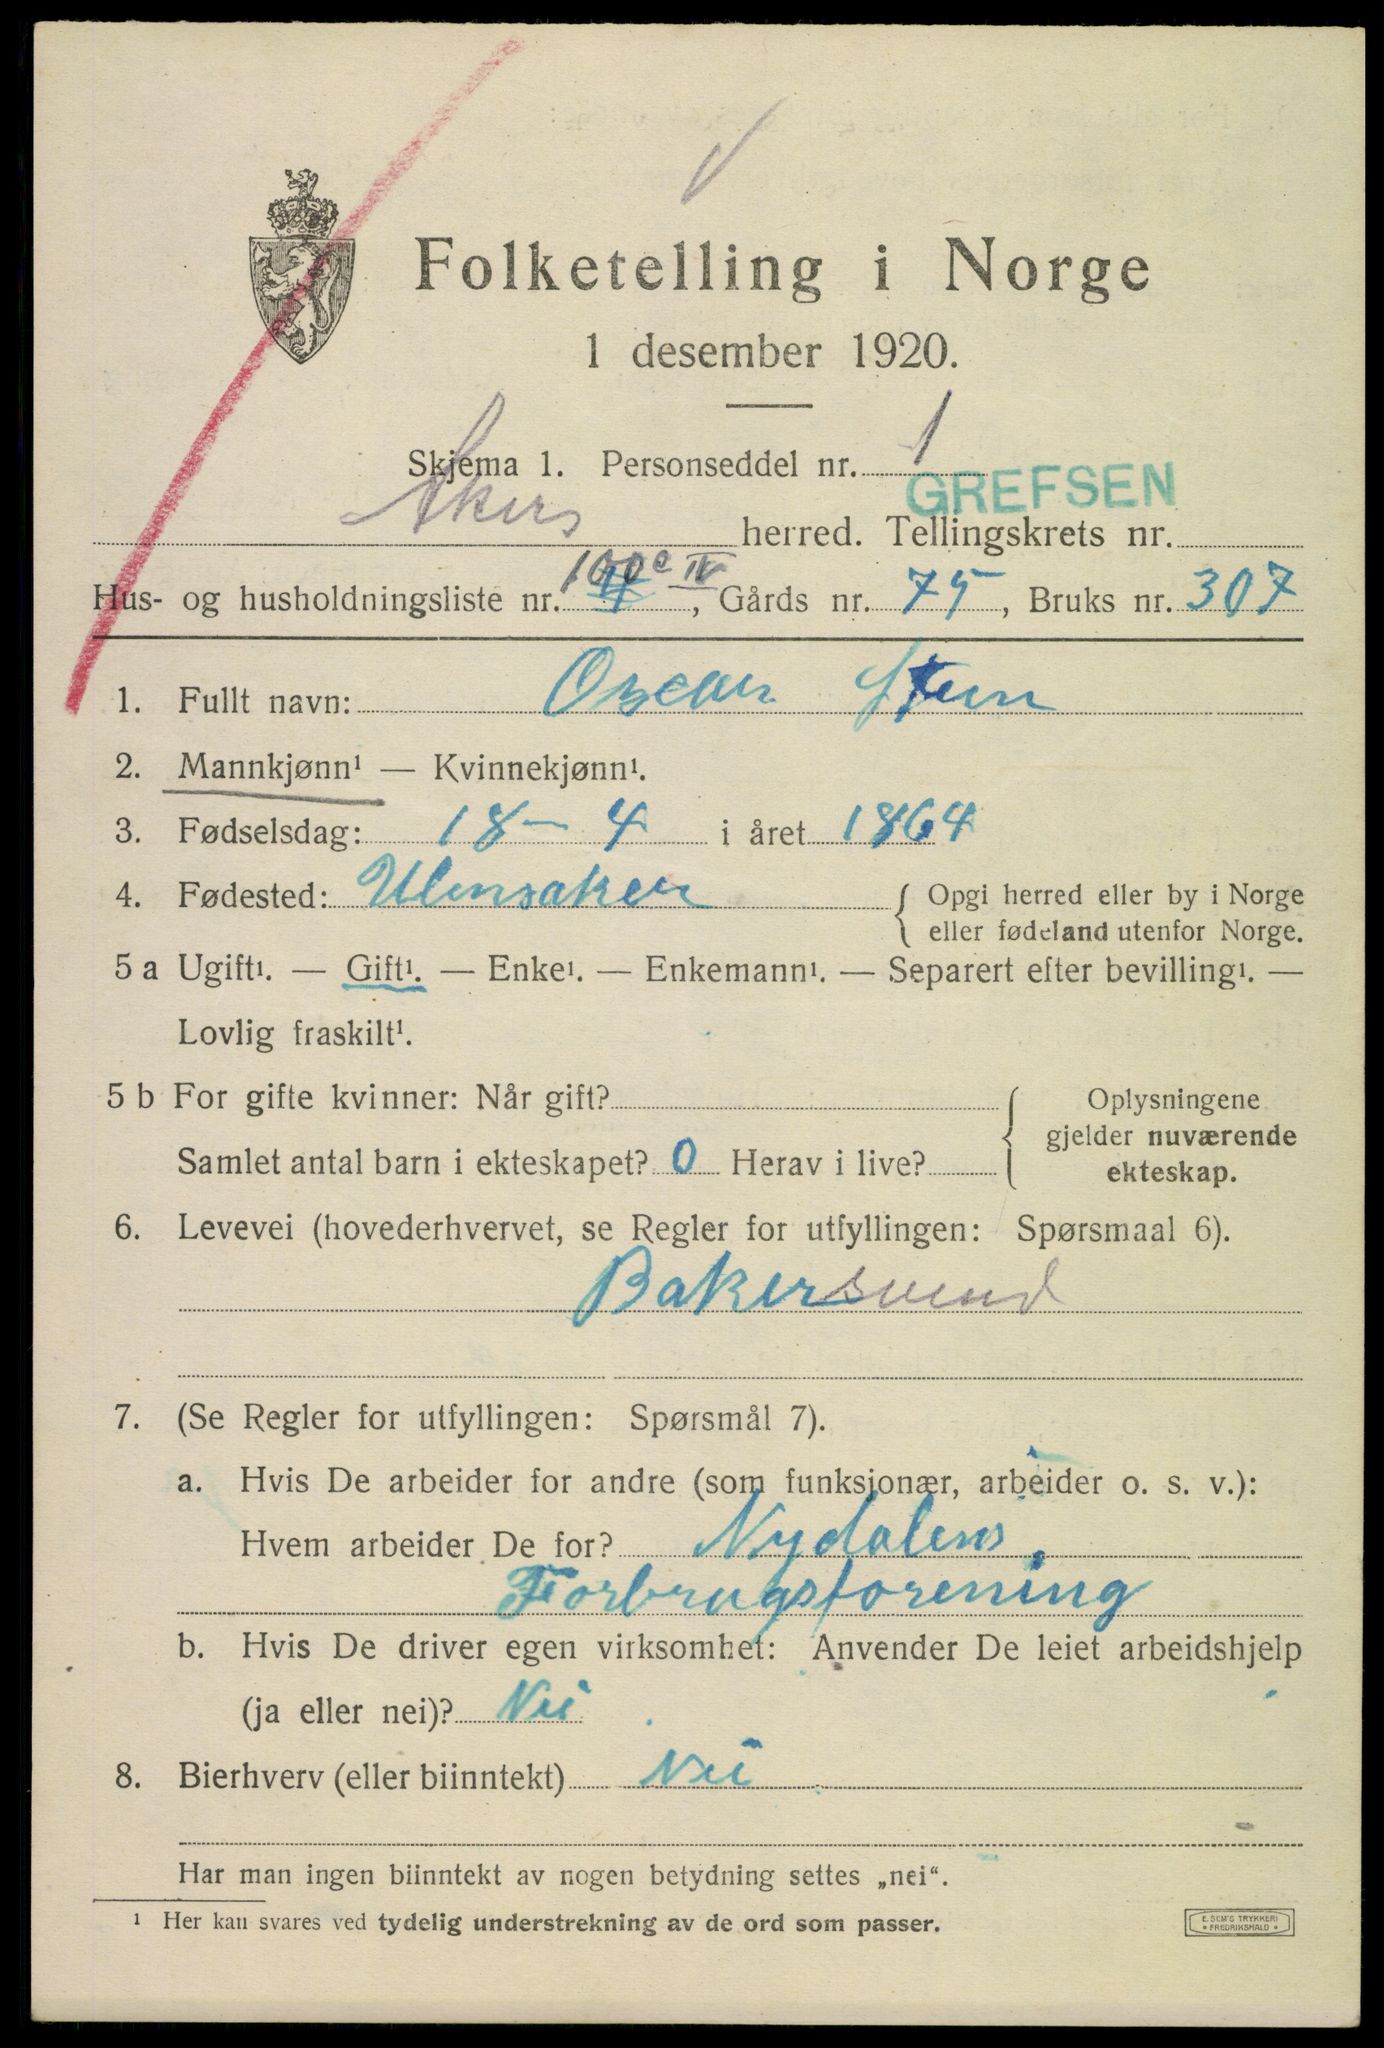 Folketelling i Norge
1 desember 1920.
Skjema 1. Personseddel nr. 1
GREFSEN
Akers herred. Tellingskrets nr.
Hus- og husholdningsliste nr. 100e IV, Gårds nr. 75, Bruks nr. 307
1. Fullt navn: Oscar Steen
2. Mannkjønn¹ — Kvinnekjønn¹.
3. Fødselsdag: 18 - 4 i året 1864
4. Fødested: Ulensaker { Opgi herred eller by i Norge
eller fødeland utenfor Norge.
5 a Ugift¹. — Gift¹. — Enke¹. — Enkemann¹. — Separert efter bevilling¹. —
Lovlig fraskilt¹.
5 b For gifte kvinner: Når gift? { Oplysningene
gjelder nuværende
Samlet antal barn i ekteskapet? 0 Herav i live? ekteskap.
6. Levevei (hovederhvervet, se Regler for utfyllingen: Spørsmaal 6).
Bakersvend
7. (Se Regler for utfyllingen: Spørsmål 7).
a. Hvis De arbeider for andre (som funksjonær, arbeider o. s. v.):
Hvem arbeider De for? Nydalens
Forbrugsforening
b. Hvis De driver egen virksomhet: Anvender De leiet arbeidshjelp
(ja eller nei)? Nei
8. Bierhverv (eller biinntekt) Nei
Har man ingen biinntekt av nogen betydning settes „nei“.
¹ Her kan svares ved tydelig understrekning av de ord som passer.
E. SEM'S TRYKKERI
FREDRIKSHALD